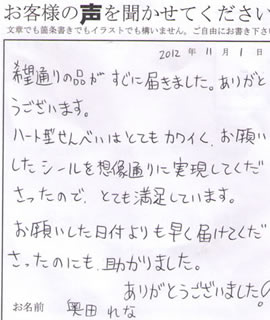 お客様の声を聞かせてください
文章でも箇条書きでもイラストでも構いません。ご自由にお書き下さ
2012 年 11 月 1 日
希望通りの品がすぐに届きました。ありがと
うございます。
ハート型せんべいはとてもカワイく、お願い
したシールを想像通りに実現してくだ
さったので、とても満足しています。
お願いした日付よりも早く届けてくだ
さったのにも、助かりました。
ありがとうございました
お名前 奥田 れな